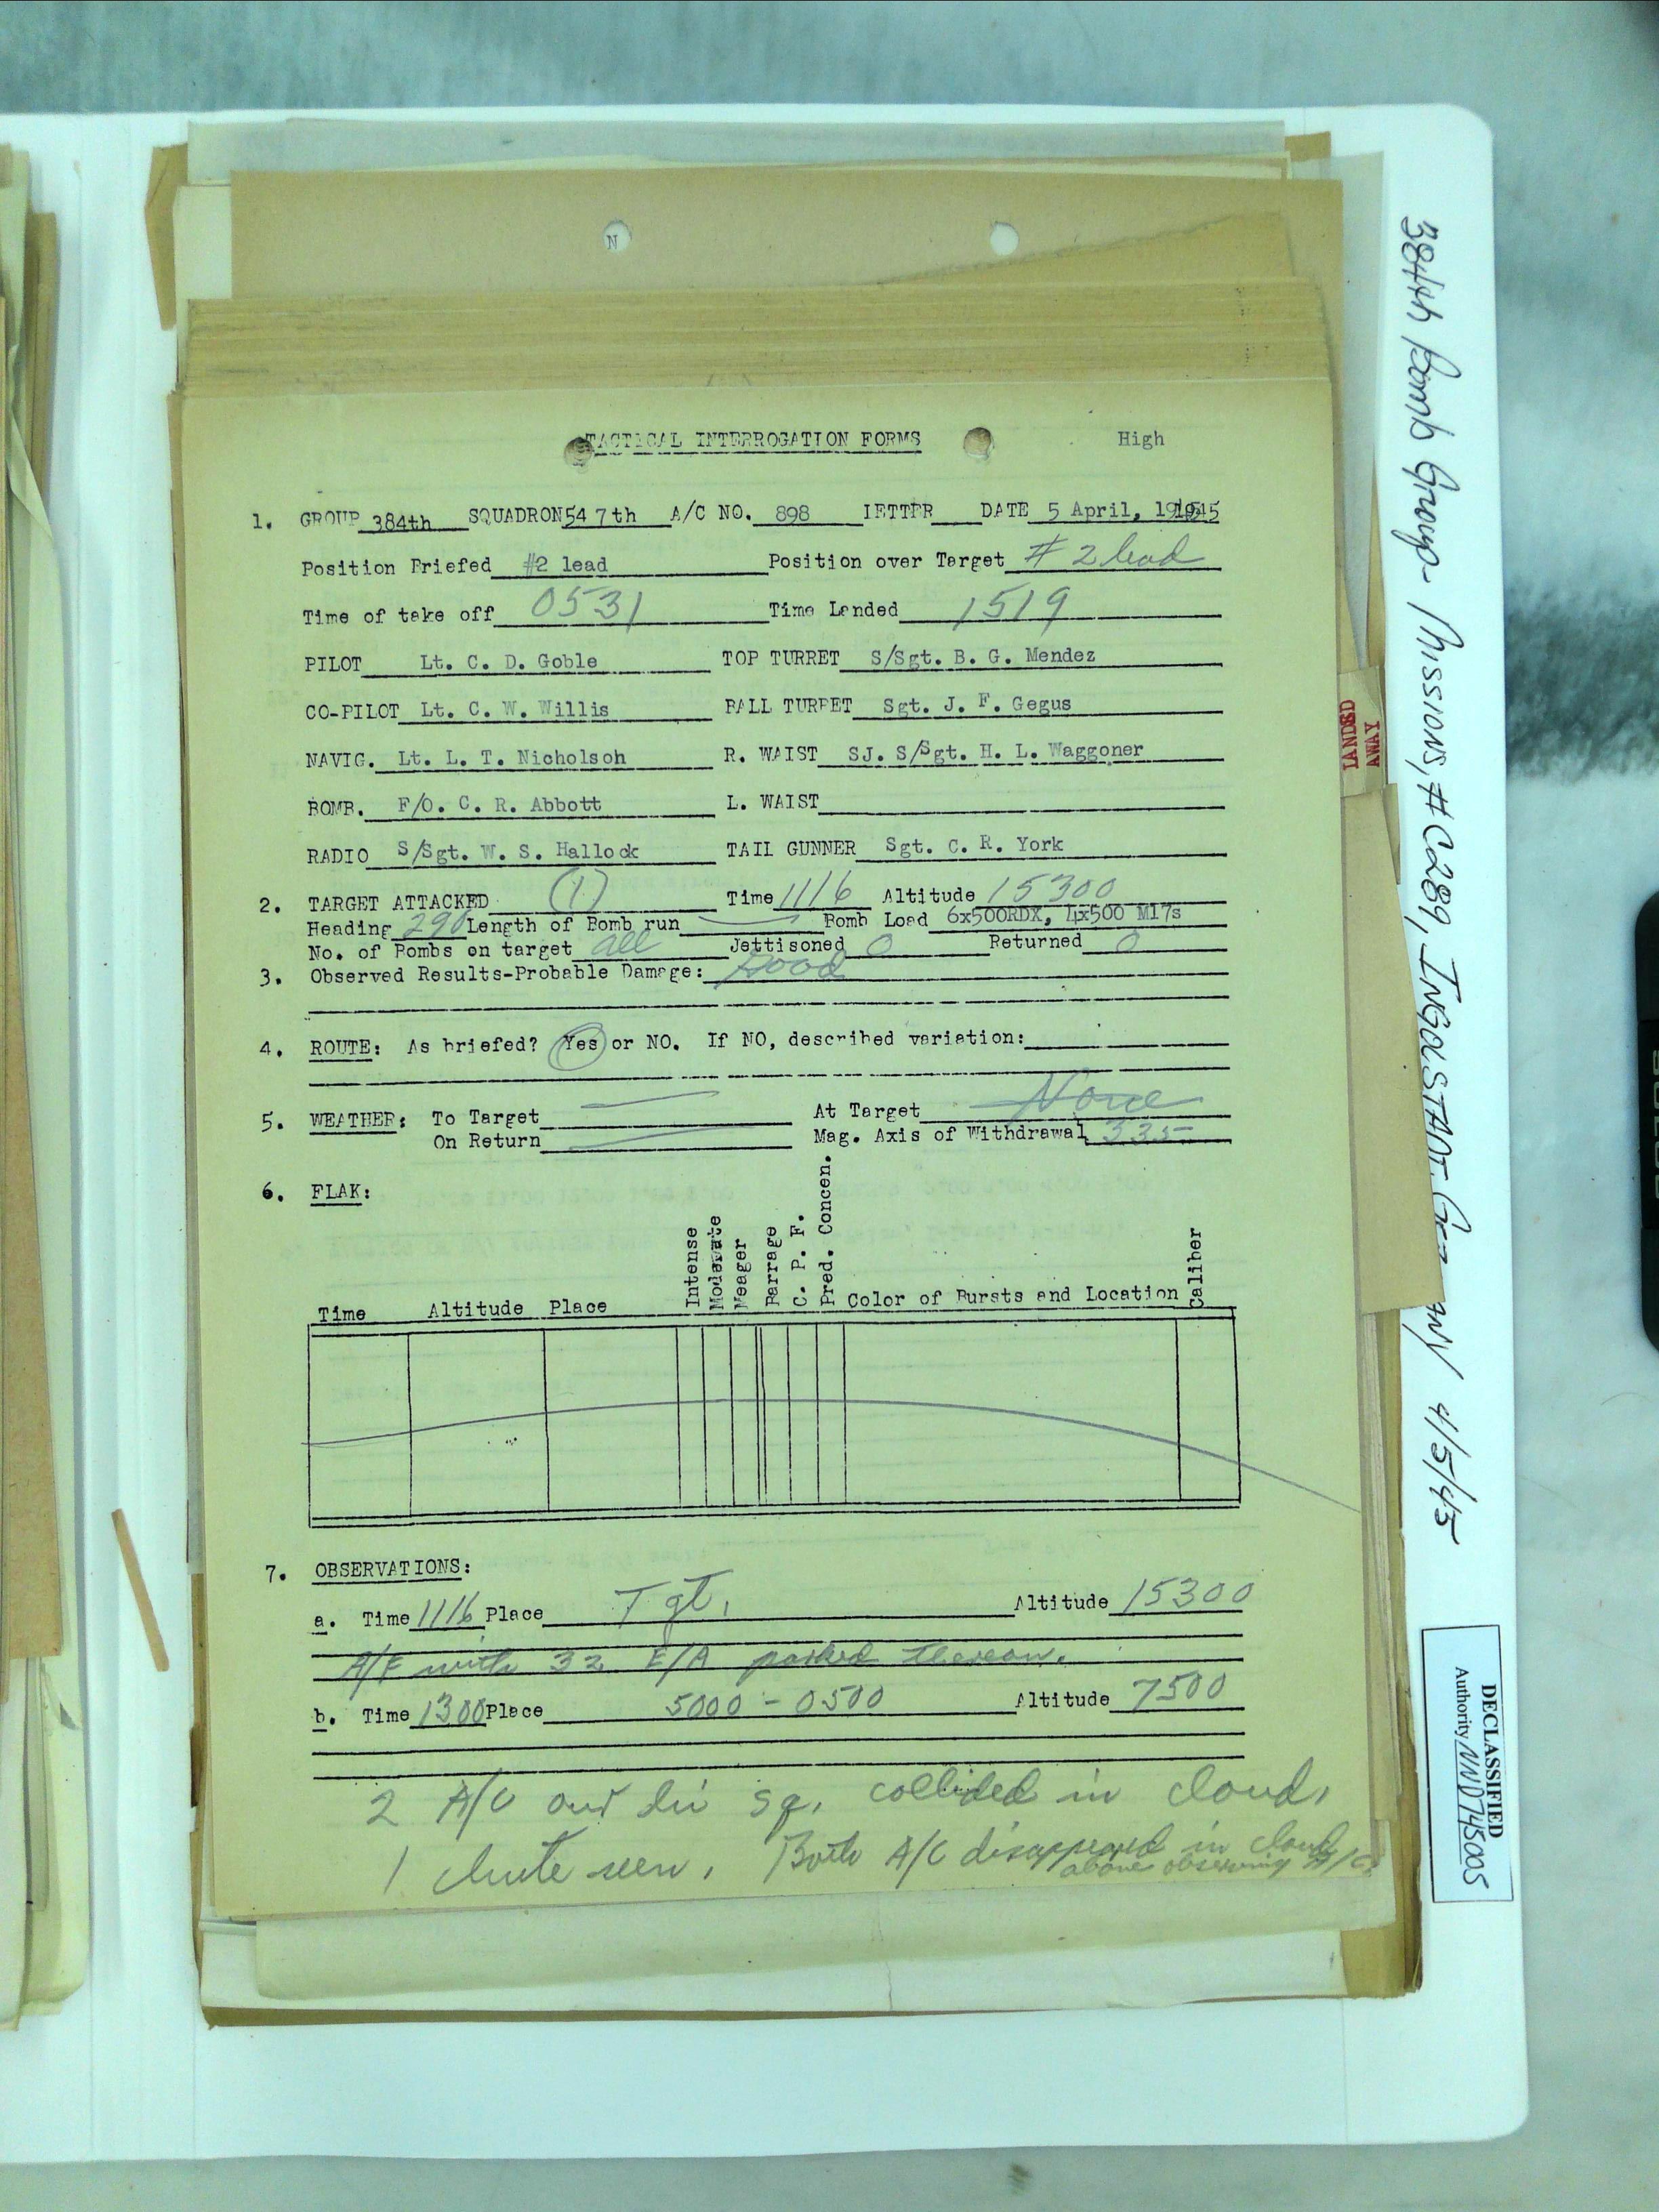 N
TACTICAL INTERROGATION FORMS High
1. GROUP 384th SQUADRON 547th A/C NO. 898 LETTER DATE 5 April, 1945
Position Briefed #2 lead Position over Target # 2 lead
Time of take off 0531 Time Landed 1519
PILOT Lt. C. D. Goble TOP TURRET S/Sgt. B. G. Mendez
CO-PILOT Lt. C. W. Willis BALL TURRET Sgt. J. F. Gegus
NAVIG. Lt. L. T. Nicholson R. WAIST SJ. S/Sgt. H. L. Waggoner
BOMB. F/O. C. R. Abbott L. WAIST
RADIO S/Sgt. W. S. Hallock TAIL GUNNER Sgt. C. R. York
2. TARGET ATTACKED (1) Time 1116 Altitude 15300
Heading 290 Length of Bomb run Bomb Load 6x500RDX, 4x500 M17s
No. of Bombs on target all Jettisoned 0 Returned 0
3. Observed Results-Probable Damage: Good
4. ROUTE: As briefed? Yes or NO. If NO, described variation:
5. WEATHER: To Target At Target None
On Return Mag. Axis of Withdrawal 335
6. FLAK:
Time Altitude Place Intense Moderate Meager Barrage C. P. F. Pred. Concen. Color of Bursts and Location Caliber
7. OBSERVATIONS:
a. Time 1116 Place Tgt. Altitude 15300
A/F with 32 E/A parked thereon.
b. Time 1300 Place 5000 - 0500 Altitude 7500
2 A/C our sq. collided in cloud,
1 chute seen. Both A/C disappeared in cloud
above observing A/C.
LANDED
AWAY
384th Bomb Group - Missions, # C289, INGOLSTADT, Ger any 4/5/45
DECLASSIFIED
Authority NND745005